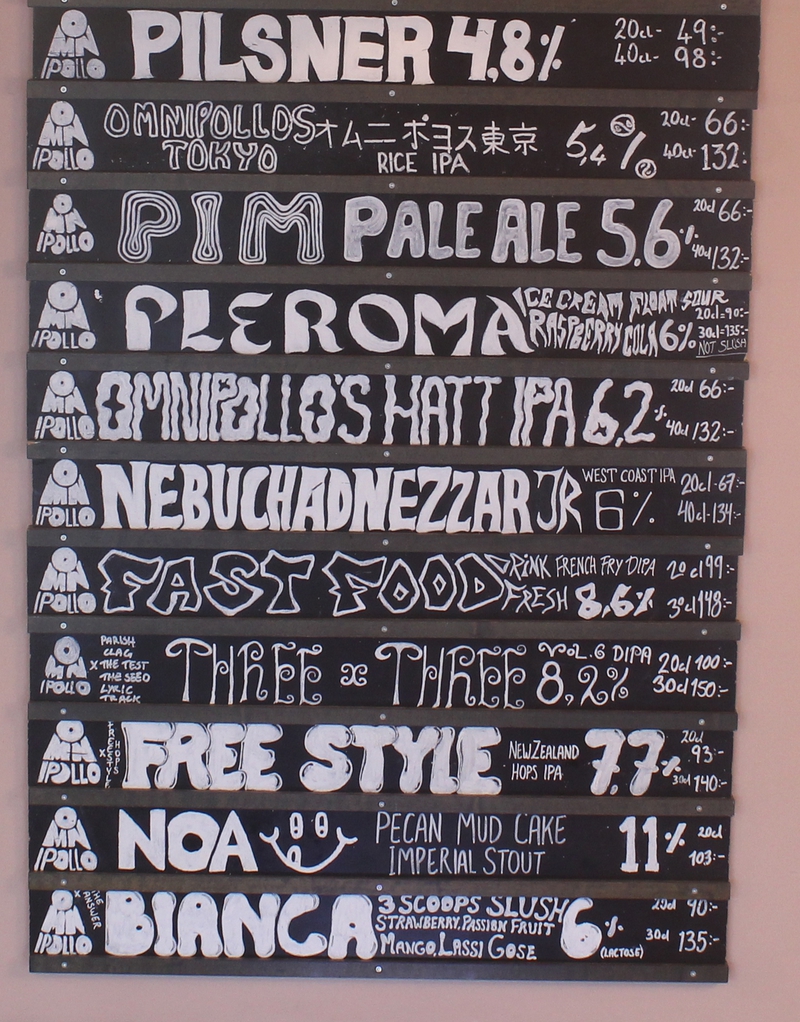 OMNIPOLLO PILSNER 4,8% 20cl- 49:-
40cl- 98:-
OMNIPOLLO OMNIPOLLOS オムニポヨス東京 5,4% 20cl- 66:-
TOKYO RICE IPA 40cl- 132:-
OMNIPOLLO PIM PALE ALE 5.6% 20cl 66:-
40cl 132:-
OMNIPOLLO PLEROMA ICE CREAM FLOAT SOUR
RASPBERRY COLA 6% 20cl=90:-
30cl=135:-
NOT SLUSH
OMNIPOLLO OMNIPOLLO'S HATT IPA 6,2% 20cl 66:-
40cl 132:-
OMNIPOLLO NEBUCHADNEZZAR JR WEST COAST IPA 20cl-67:-
6% 40cl-134:-
OMNIPOLLO FAST FOOD DRINK FRENCH FRY DIPA 20cl 99:-
FRESH 8,6% 30cl 148:-
OMNIPOLLO X PARISH
CLAG
THE TEST
THE SEED
LYRIC
TRACK
THREE x THREE VOL.6 DIPA 20cl 100:-
8,2% 30cl 150:-
OMNIPOLLO X FREESTYLE HOPS FREE STYLE NEW ZEALAND 7.7% 20cl 93:-
HOPS IPA 30cl 140:-
OMNIPOLLO NOA PECAN MUD CAKE 11% 20cl
IMPERIAL STOUT 103:-
OMNIPOLLO X THE ANSWER BIANCA 3 SCOOPS SLUSH 6% 20cl 90:-
STRAWBERRY, PASSION FRUIT
MANGO, LASSI GOSE (LACTOSE) 30cl 135:-